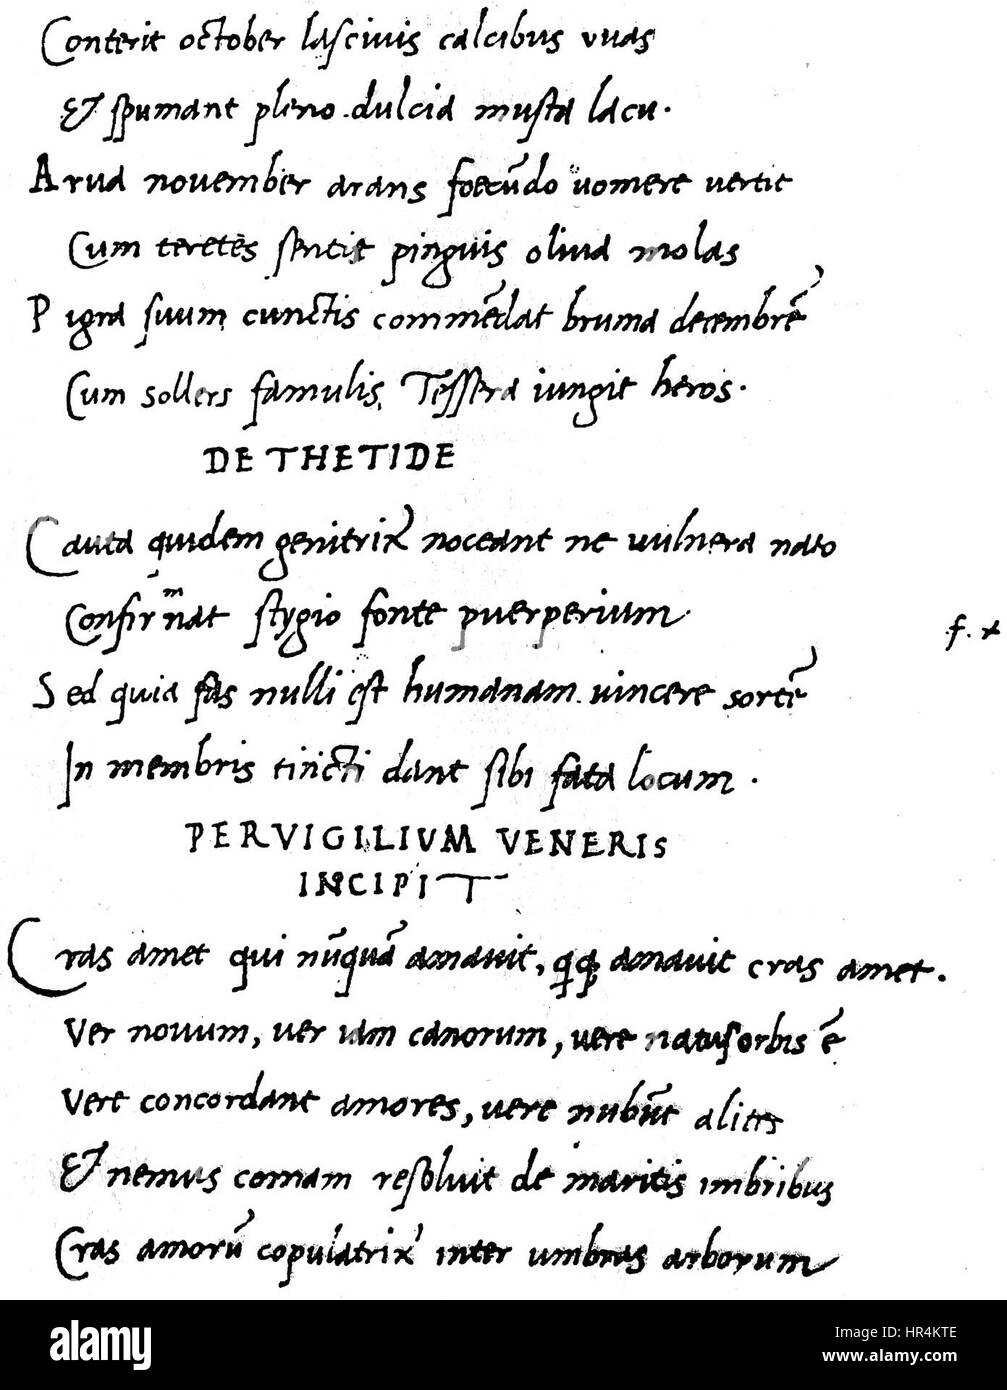 Conterit october lasciuis calcibus vuas
Et spumant pleno dulcia musta lacu.
Arua nouember arans foecūdo uomere vertit
Cum teretes sentit pinguis oliua molas
Pigra suum cunctis commēdat bruma decembrē
Cum sollers famulis Tessera iungit heros.
DE THETIDE
Cauta quidem genitrix noceant ne uulnera nato
Confirmat stygio fonte puerperium
f. x
Sed quia fas nulli est humanam uincere sortē
In membris tincti dant sibi fata locum.
PERVIGILIVM VENERIS
INCIPIT
Cras amet qui nūquā amauit, qq amauit cras amet.
Ver nouum, uer iam canorum, uere natus orbis ē
Vere concordant amores, uere nubūt alites
Et nemus comam resoluit de maritis imbribus
Cras amorū copulatrix inter umbras arborum
alamy
Image ID: HR4KTE
www.alamy.com